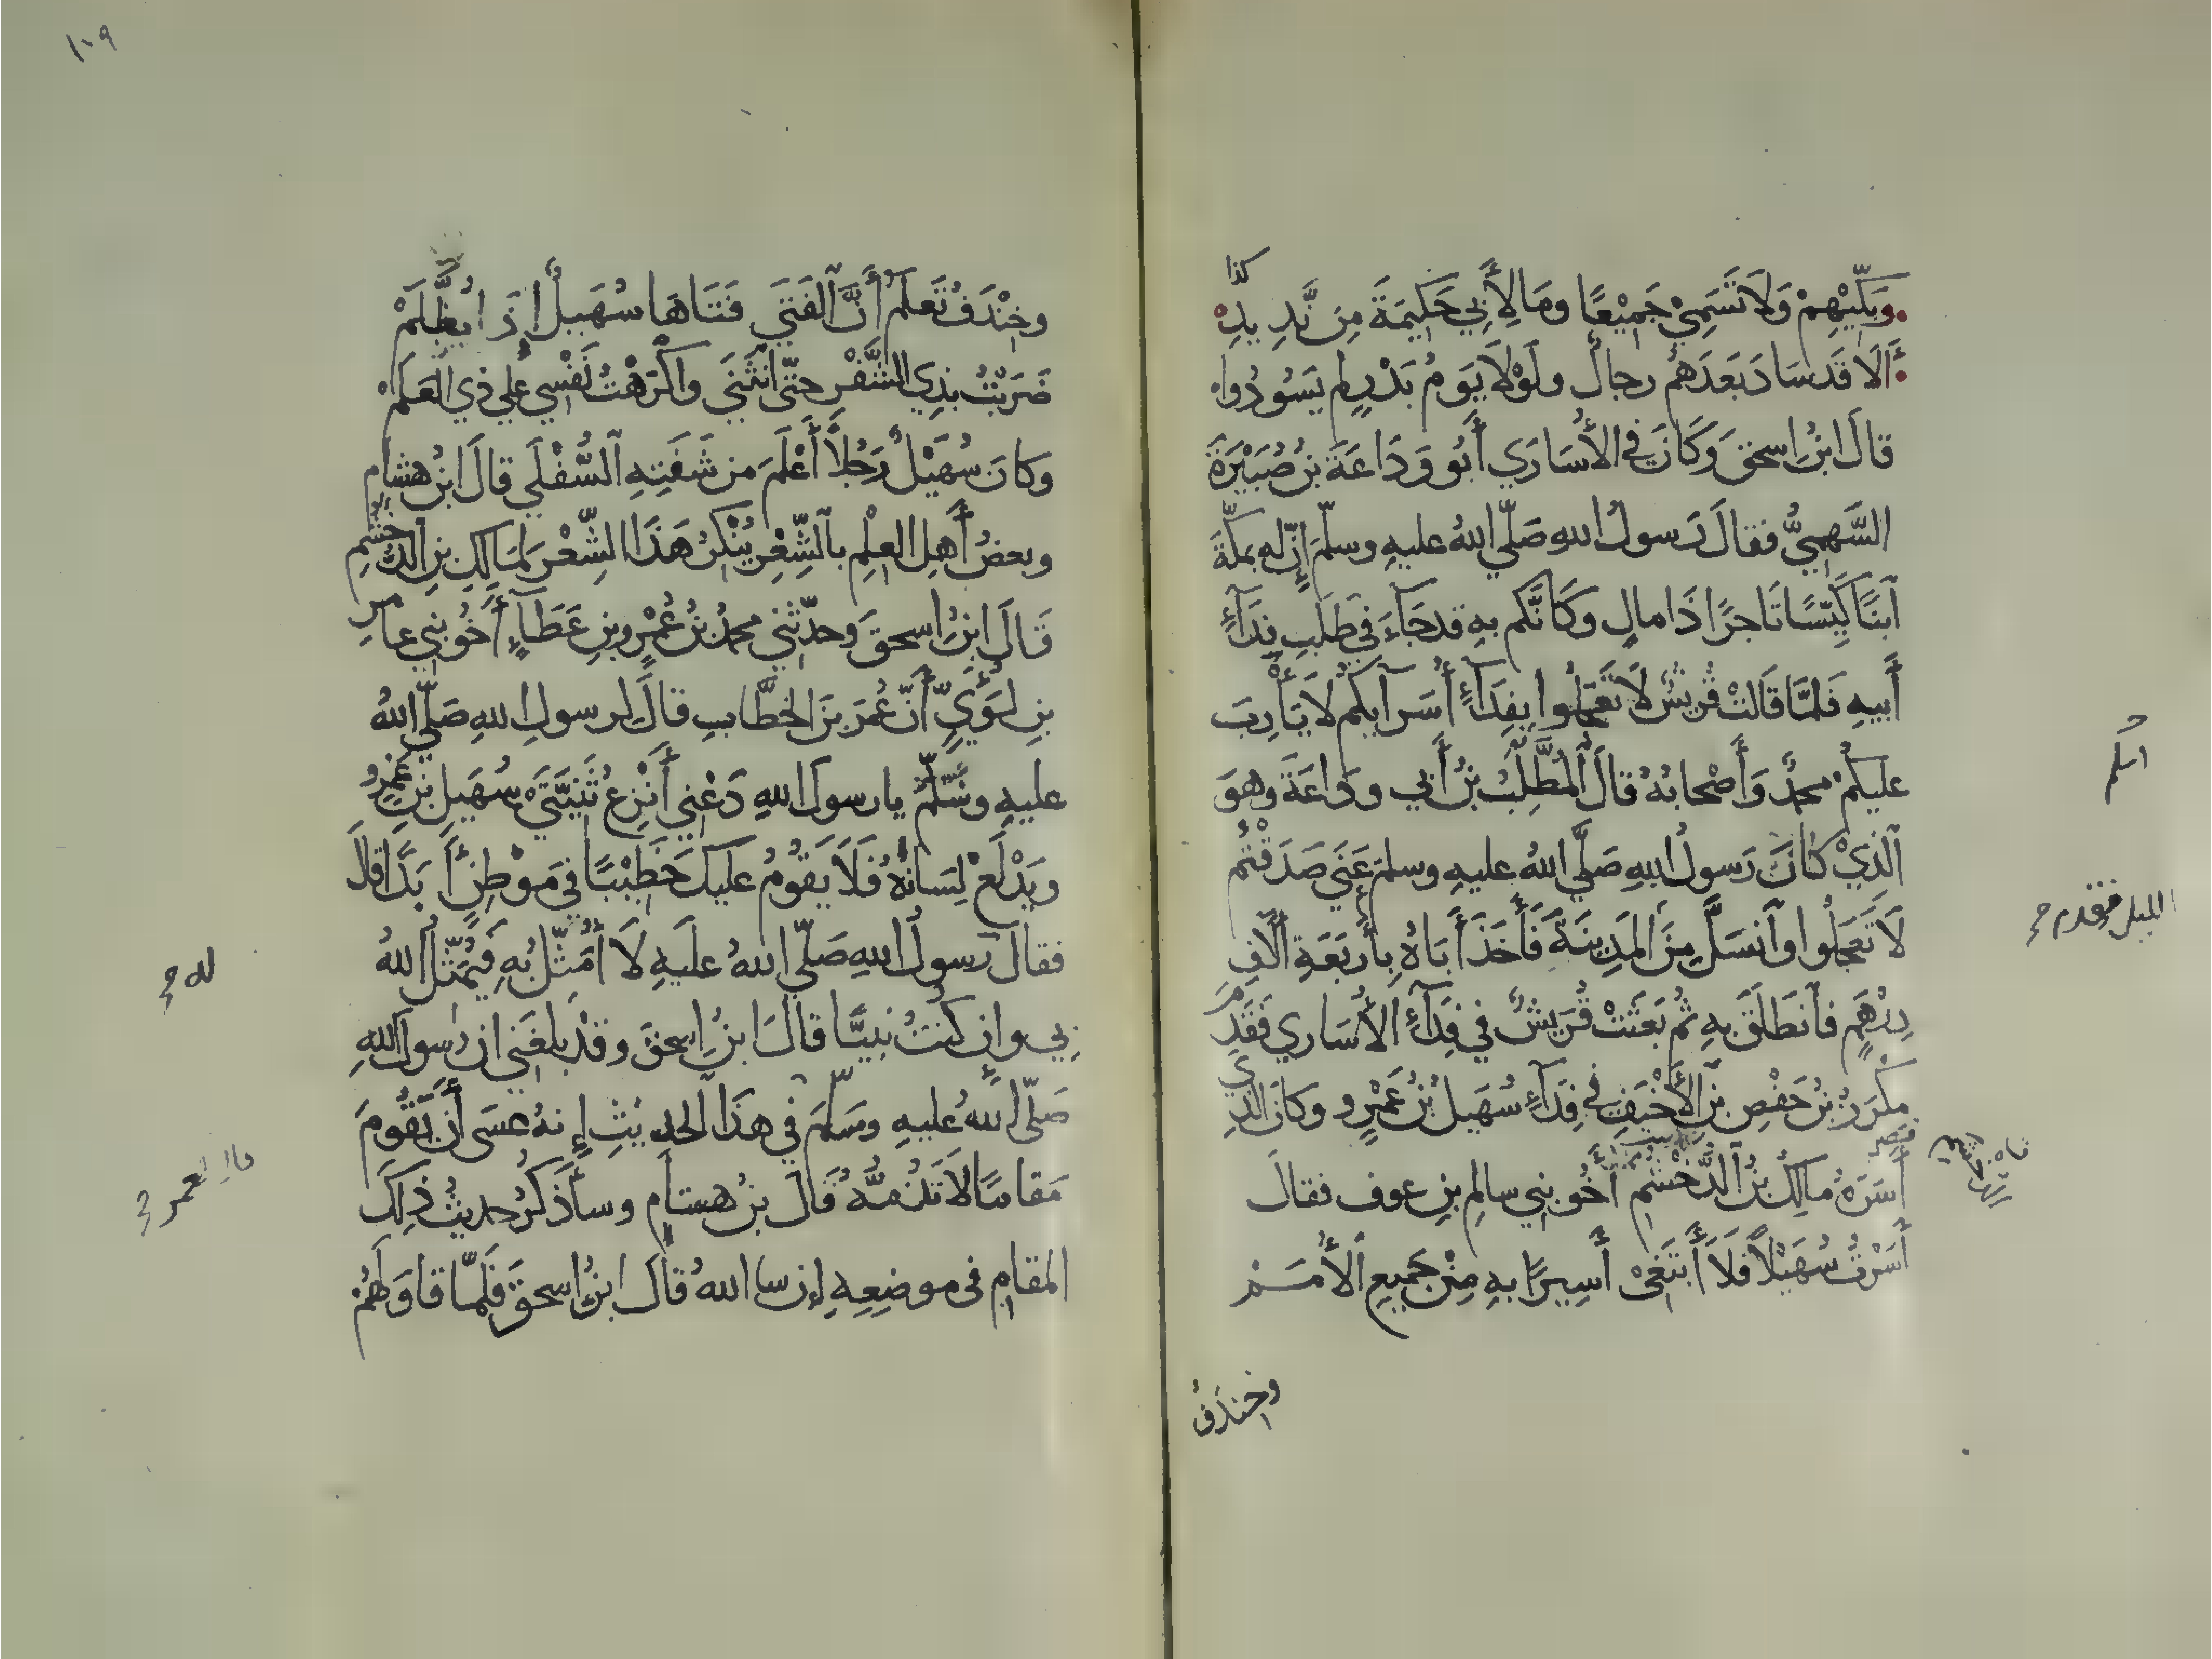 كذا
وبكّيهم ولا تَسَمِي جَميْعًا وما لأَبِي حَكيمَةَ مِن نَّدِيدِ
أَلَا قَد سَادَ بَعدَهُم رجالٌ ولَوْلَا يَومُ بَدْرٍ لم يَسُودُوا
قالَ ابنُ اسحقَ وَكَانَ في الأُسَارَي أَبُو وَدَاعَةَ بنُ صُبَيْرَةَ
السَّهميُّ فقالَ رَسولُ اللهِ صَلّي اللهُ عليهِ وسلّمَ إنّ له بمكّةَ
ٱبنًا كَيِّسًا تَاجرًا ذَا مالٍ وَكَأنَّكم بهِ قد جَآءَ في طَلَبِ فِدَآءِ
أَبيهِ فَلمَّا قَالَتْ قُريشٌ لَا تَعْجَلُوا بِفِدَآءِ أُسَرآيكُم لَا يَأْرَبَ
عليكُمْ محمّدٌ وَأَصْحابُهُ قالَ ٱلمُطَّلِبُ بنُ أَبي ودَاعَةَ وهوَ
ٱلّذِيْ كَانَ رَسولُ اللهِ صَلّي اللهُ عليهِ وسلمَ عَنَي صَدَقْتُم
لَا تَعجَلُوا وٱنسَلَّ مِنَ المَدِينَةِ فَأَخَذَ أَبَاهُ بِأَربَعَةِ آلَافِ
دِرْهَمٍ فٱنطَلَقَ بهِ ثُم بَعَثَتْ قُرَيشٌ في فِدَآءِ الأُسَاري فَقَدِمَ
مِكْرَزُ بنُ حَفْصِ بنِ الأَخْيَفِ في فِدَآءِ سُهَيلِ بنِ عَمْرٍو وكانَ الذِي
أَسَرَهُ مَالِكُ بنُ الدُّخْشُمِ أَخُو بني سالمِ بنِ عوف فقالَ
أَسَرْتُ سُهَيْلًا فَلَا أَبتَغِيْ أَسِيرًا بهِ مِنْ جَميعِ ٱلأُمَمْ
وخندفُ
١٠٩
وخِنْدَفُ تَعلَمُ أَنَّ الفَتَي فَتَاهَا سُهَيلٌ إذَا يُظَّلَمْ
ضَرَبْتُ بذِي الشَّفْرِ حتّي ٱنثَنَي وأكْرَهْتُ نَفْسِي علي ذي العَلَمْ
وَكانَ سُهَيْلٌ رَجُلًا أَعْلَمَ من شَفَتِهِ السُّفْلَي قالَ ابنُ هشامٍ
وبعضُ أَهلِ العلمِ بالشِّعْرِ يُنْكِرُ هَذَا الشِّعْرَ لمَالِكِ بنِ الدُّخشُمِ
قَالَ ابنُ اسحقَ وحدّثني محمدُ بنُ عَمْرِو بنِ عَطَآءٍ أَخُو بني عامرِ
بنِ لؤَيٍّ أَنّ عُمَرَ بنَ الخطَّابِ قالَ لرسولِ اللهِ صَلّي اللهُ
عليهِ وسَلّمَ يا رسولَ اللهِ دَعْني أَنْزِعْ ثَنِيَّتَيْ سُهَيلِ بنِ عَمْرٍو
ويَدْلَعْ لِسَانُهُ فَلَا يَقُومُ عليكَ خَطِيْبًا في مَوْطِنٍ أَبَدًا قَالَ
فقالَ رَسولُ اللهِ صَلّي اللهُ علَيهِ لَا أُمَثِّلُ بهِ فَيُمَثِّلُ اللهُ
بي وإن كنتُ نبيًّا قالَ ابنُ اسحقَ وقدْ بلغَني ان رسولَ اللهِ
صَلّي اللهُ عليهِ وسَلّمَ في هذَا الحديثِ إِنهُ عسَي أَنْ يَقُومَ
مَقامًا لَا تَذُمّهُ قَالَ بنُ هشامٍ وسأَذكرُ حديثَ ذلِكَ
المقامِ في موضعِهِ إن سا اللهُ قالَ ابنُ اسحقَ فَلمّا قاوَلَهُمْ